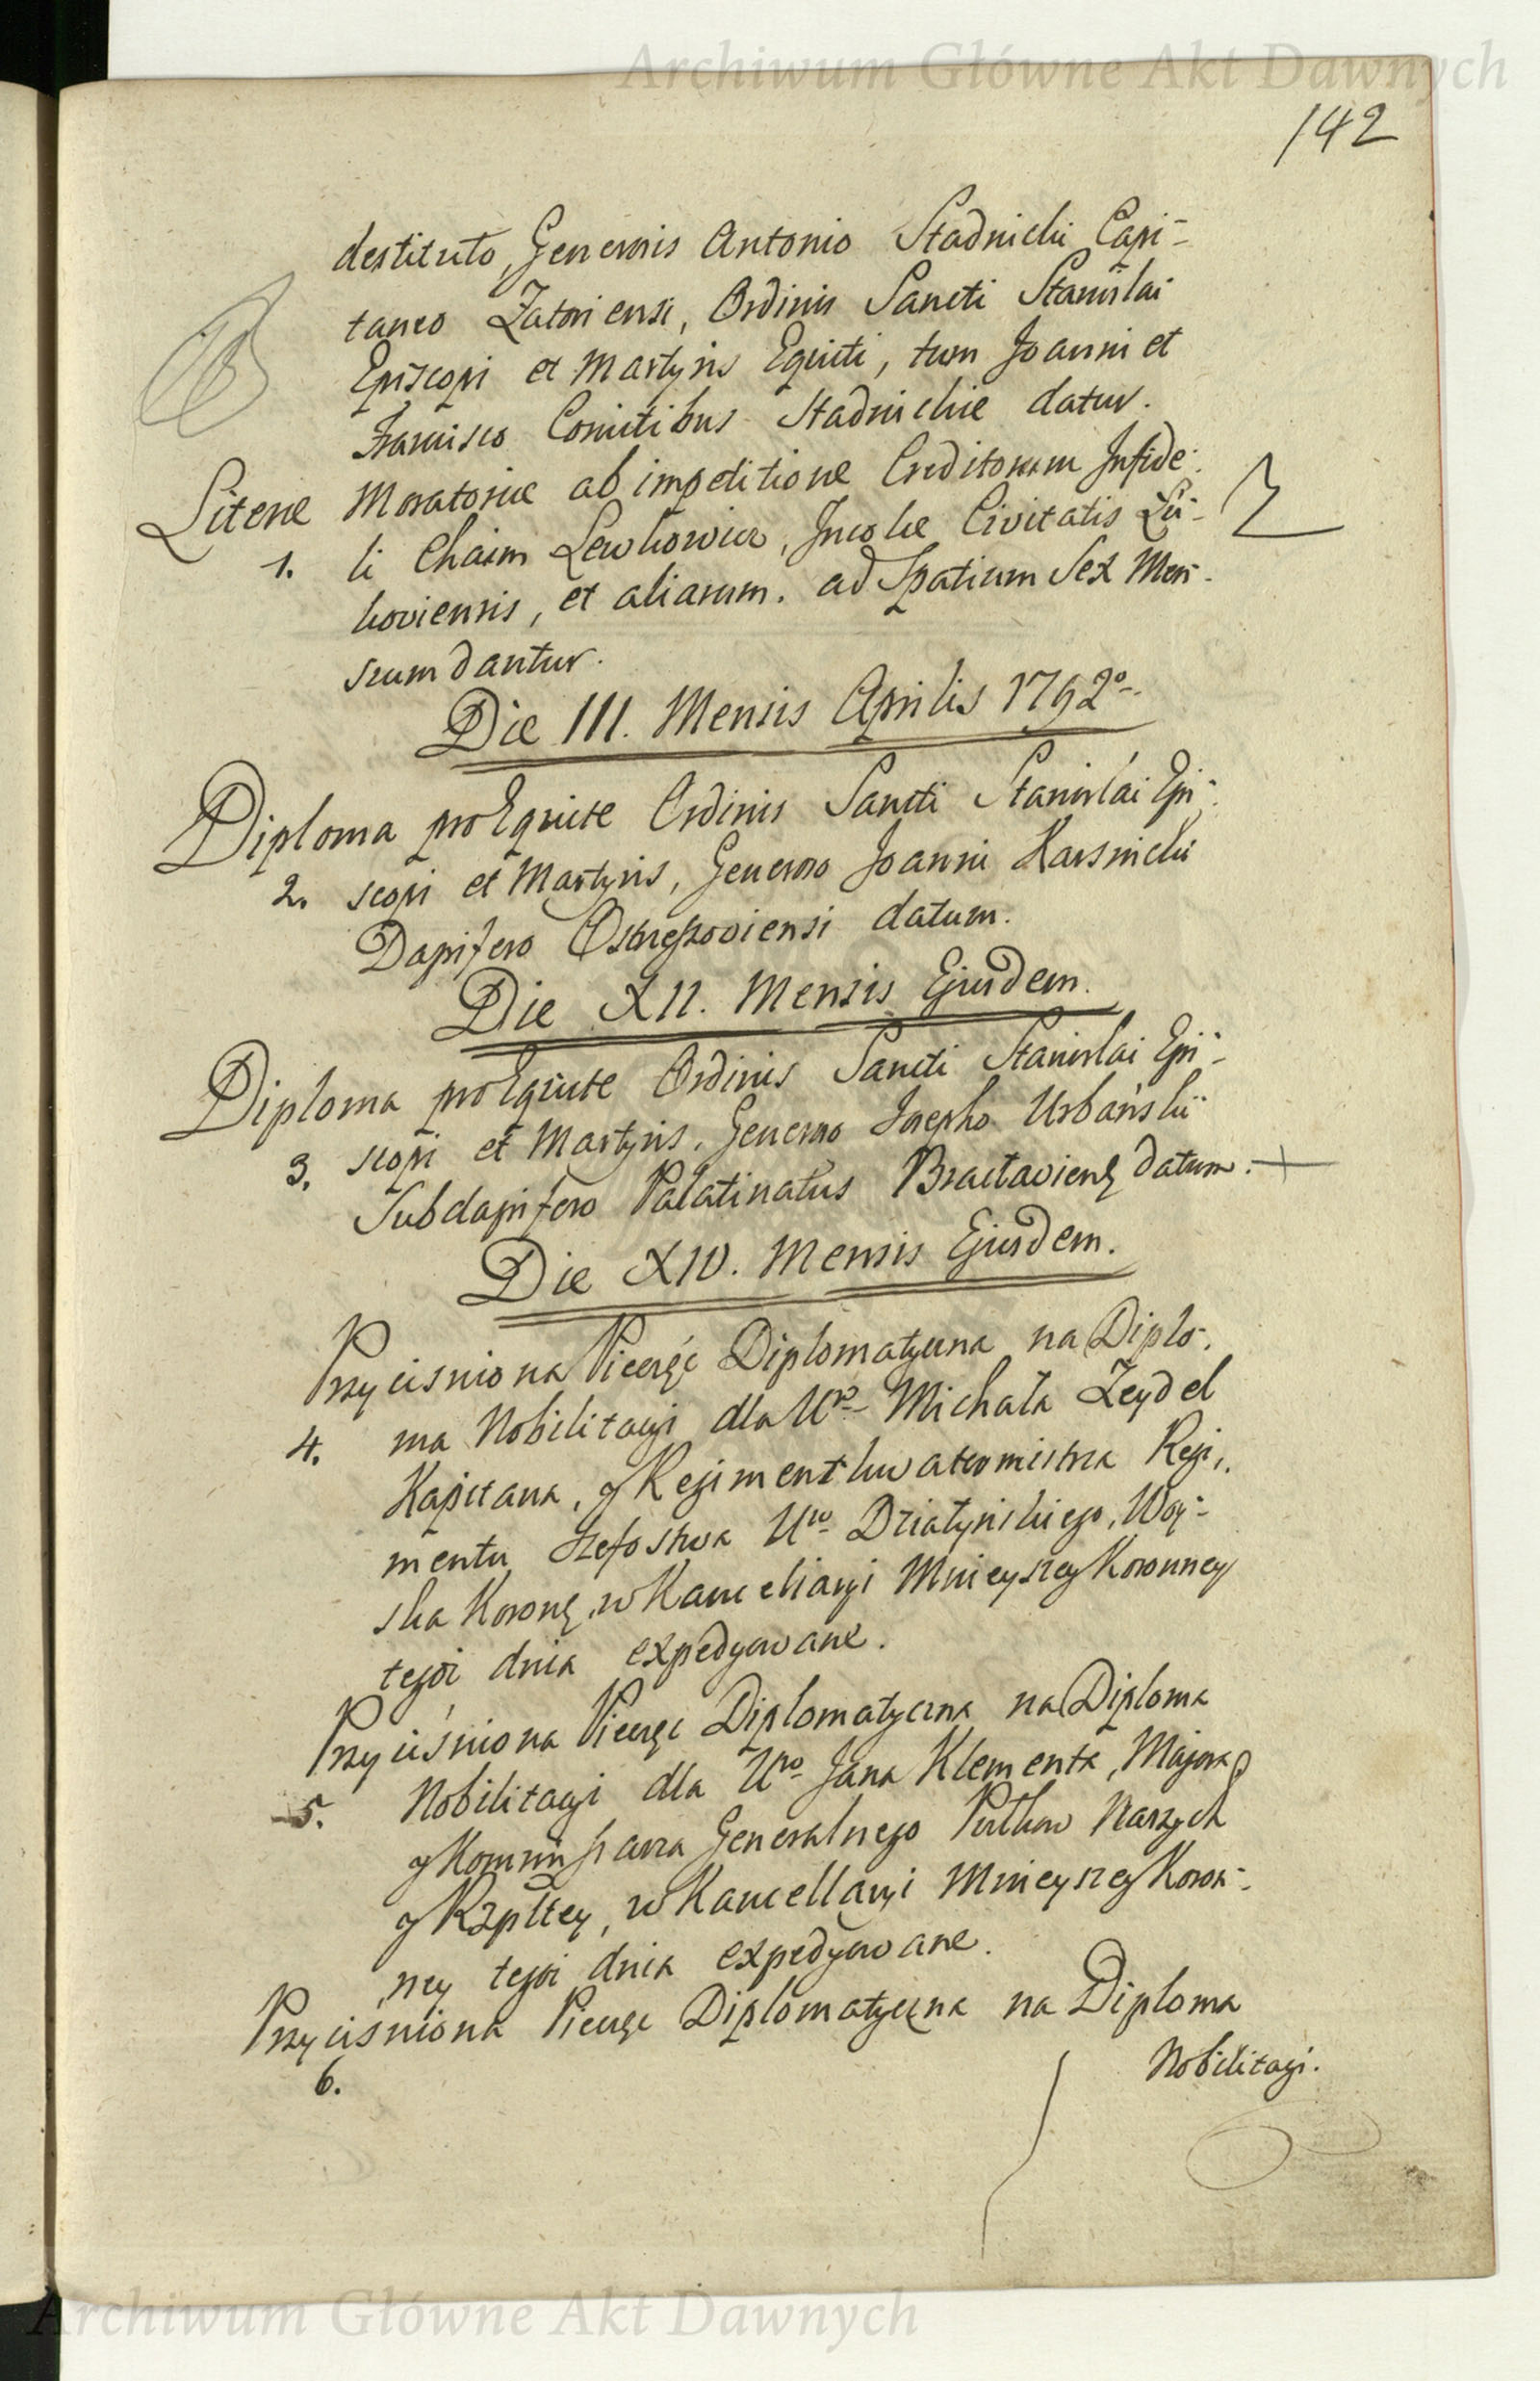 Archiwum Główne Akt Dawnych
142
destituto, Generosis Antonio Stadnicki Capi-
taneo Zatoriensi, Ordinis Sancti Stanislai
Episcopi et Martyris Equiti, tum Joanni et
Francisco Comitibus Stadnickie datur.
Literæ Moratoriæ ab impetitione Creditorum Infide-
1. li Chaim Lewkowicz, Incolæ Civitatis
koviensis, et aliarum. ad Spatium Sex Men-
sium dantur.
Die III. Mensis Aprilis 1792o.
Diploma pro Equite Ordinis Sancti Stanislai Epi-
2. scopi et Martyris, Generoso Joanni Karsnicki
Dapifero Ostrzeszoviensi datum.
Die XII. Mensis Ejusdem.
Diploma pro Equite Ordinis Sancti Stanislai Epi-
3. scopi et Martyris, Generoso Josepho Urbański
Subdapifero Palatinatus Bractaviens datum.
Die XIV. Mensis Ejusdem.
Przyciśniona Pieczęć Diplomatyczna na Diplo-
4. ma Nobilitacyi dla Uro Michała Zeydel
Kapitana, y Regiment kwatermistrza Regi-
mentu Szefostwa Uro Działyńskiego, Woy-
ska Koronę, w Kancellaryi Mnieyszey Koronney
tegoż dnia expedyowane.
Przyciśniona Pieczęć Diplomatyczna na Diploma
5. Nobilitacyi dla Uro Jana Klementa, Majora
y Kommissarza Generalnego Pułkow Naszych
y Rzpltey, w Kancellaryi Mnieyszey Koron-
ney tegoż dnia expedyowane.
Przyciśniona Pieczęć Diplomatyczna na Diploma
6.
Nobilitacyi.
Archiwum Główne Akt Dawnych